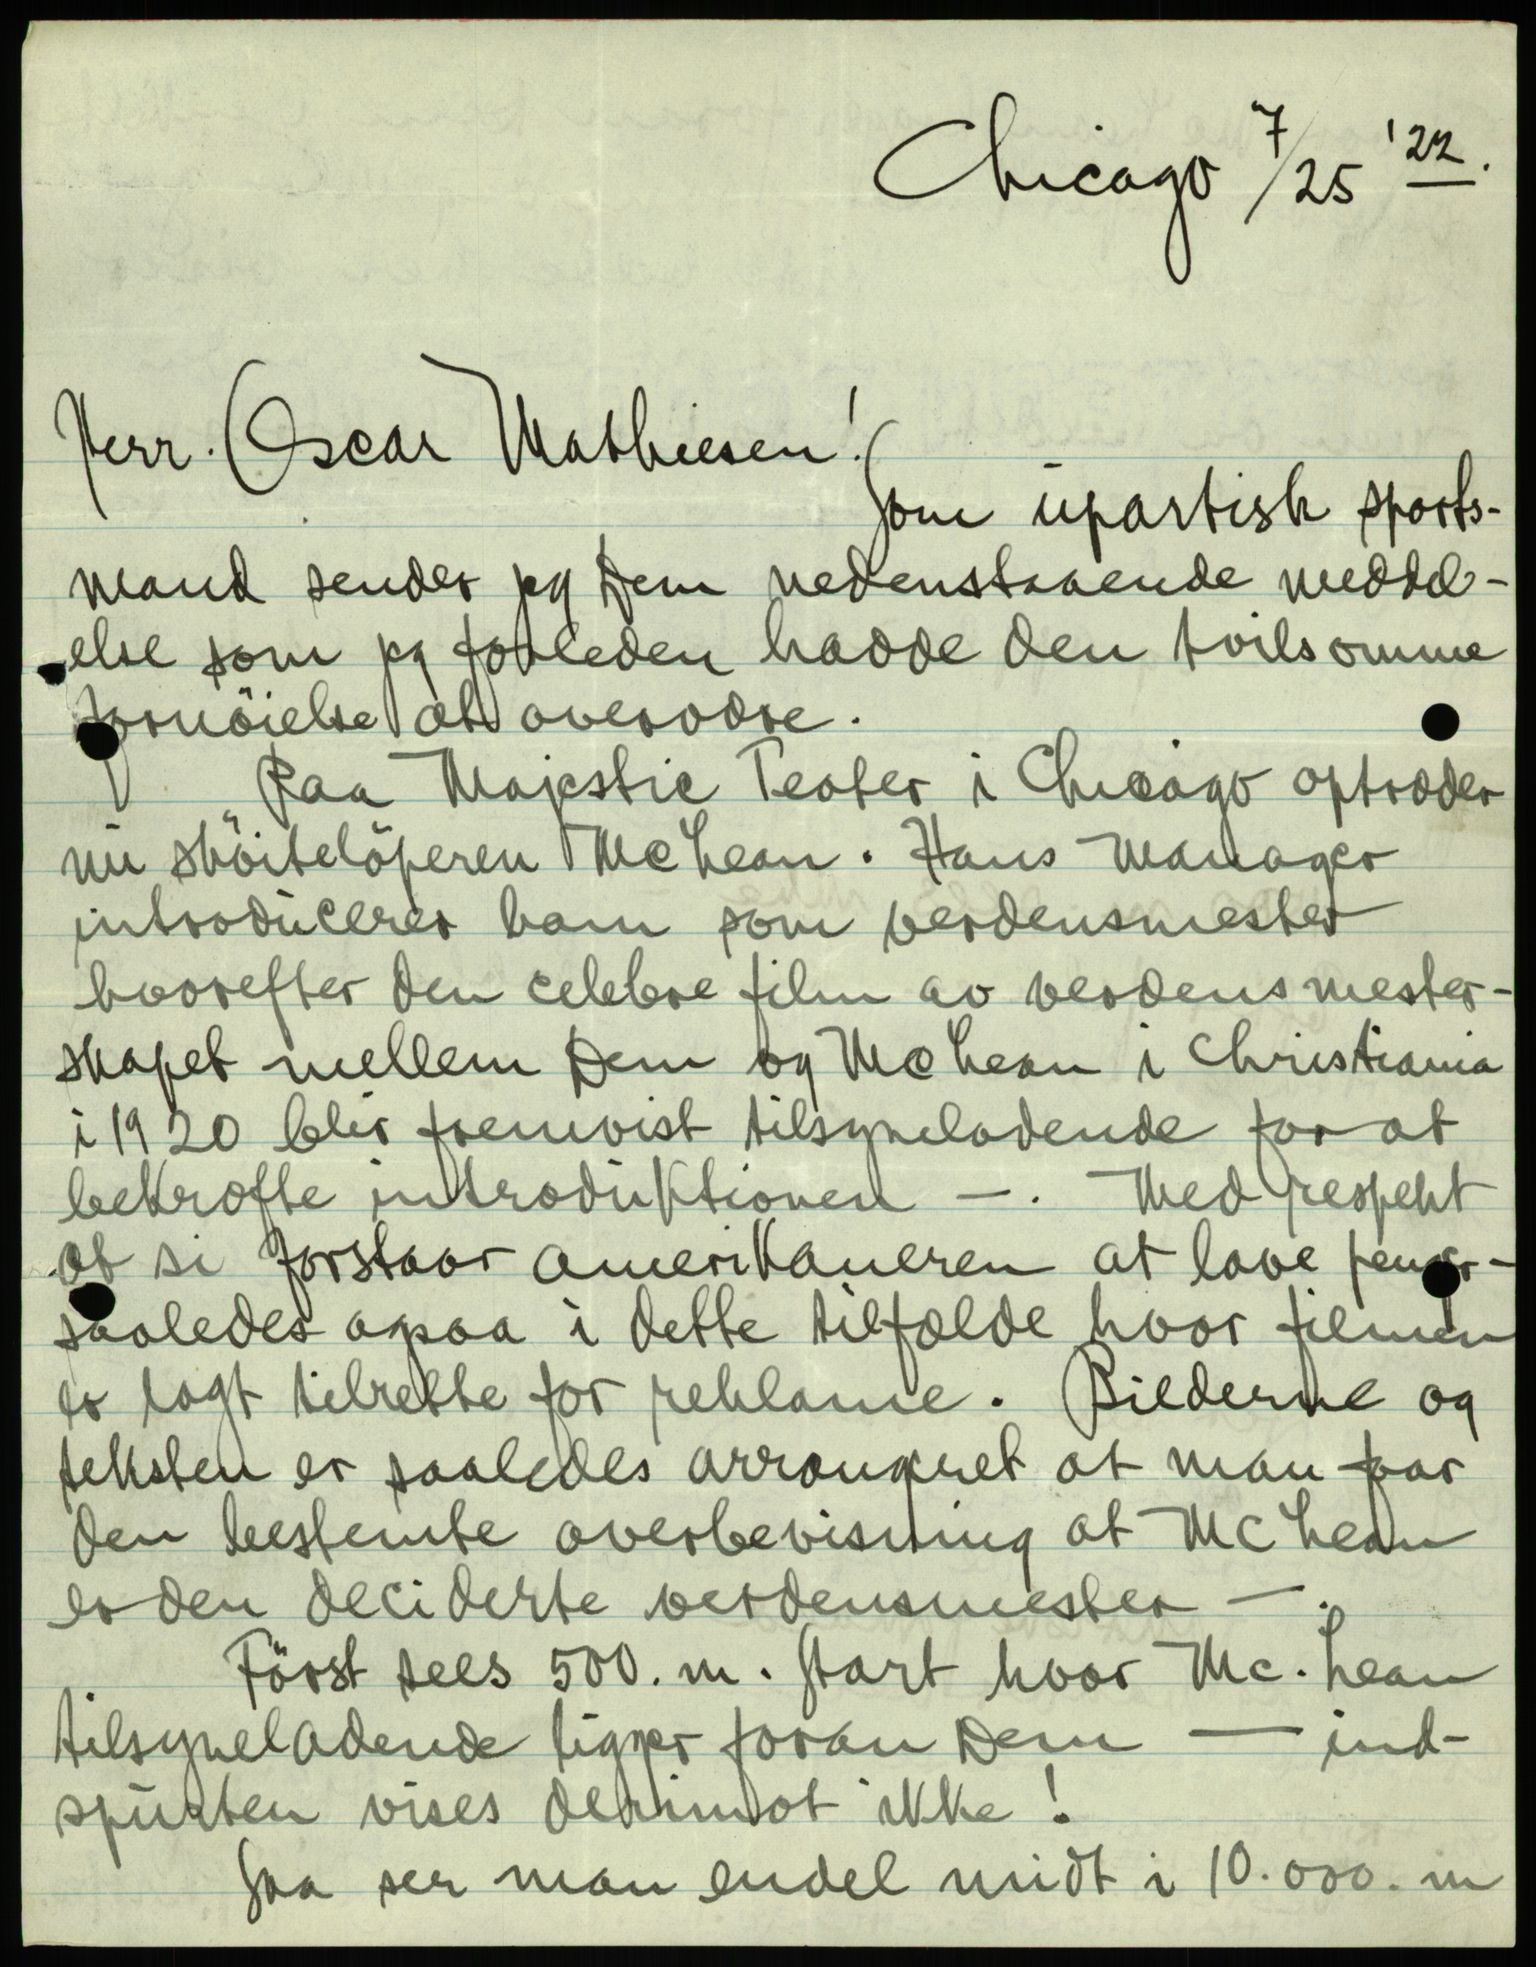 Chicago 7/25 '22.
Herr. Oscar Mathiesen!
Som upartisk sports-
mand sender jeg Dem nedenstaaende meddel-
else som jeg forleden hadde den tvilsomme
fornöielse at overvære.
Paa Majestic Teater i Chicago optræder
nu sköitelöperen McLean. Hans Manager
introducerer ham som verdensmester
hvorefter den celebre film av verdensmester-
skapet mellem Dem og McLean i Christiania
i 1920 blir fremvist tilsyneladende for at
bekræfte introduktionen —. Med respekt
at si forstaar amerikaneren at lave penger-
saaledes ogsaa i dette tilfælde hvor filmen
er lagt tilrette for reklame. Billederne og
teksten er saaledes arrangeret at man faar
den bestemte overbevisning at McLean
er den deciderte verdensmester —.
Först sees 500. m. Start hvor Mc. Lean
tilsyneladende ligger foran Dem — ind-
spurten vises derimot ikke!
Saa ser man endel midt i 10.000. m